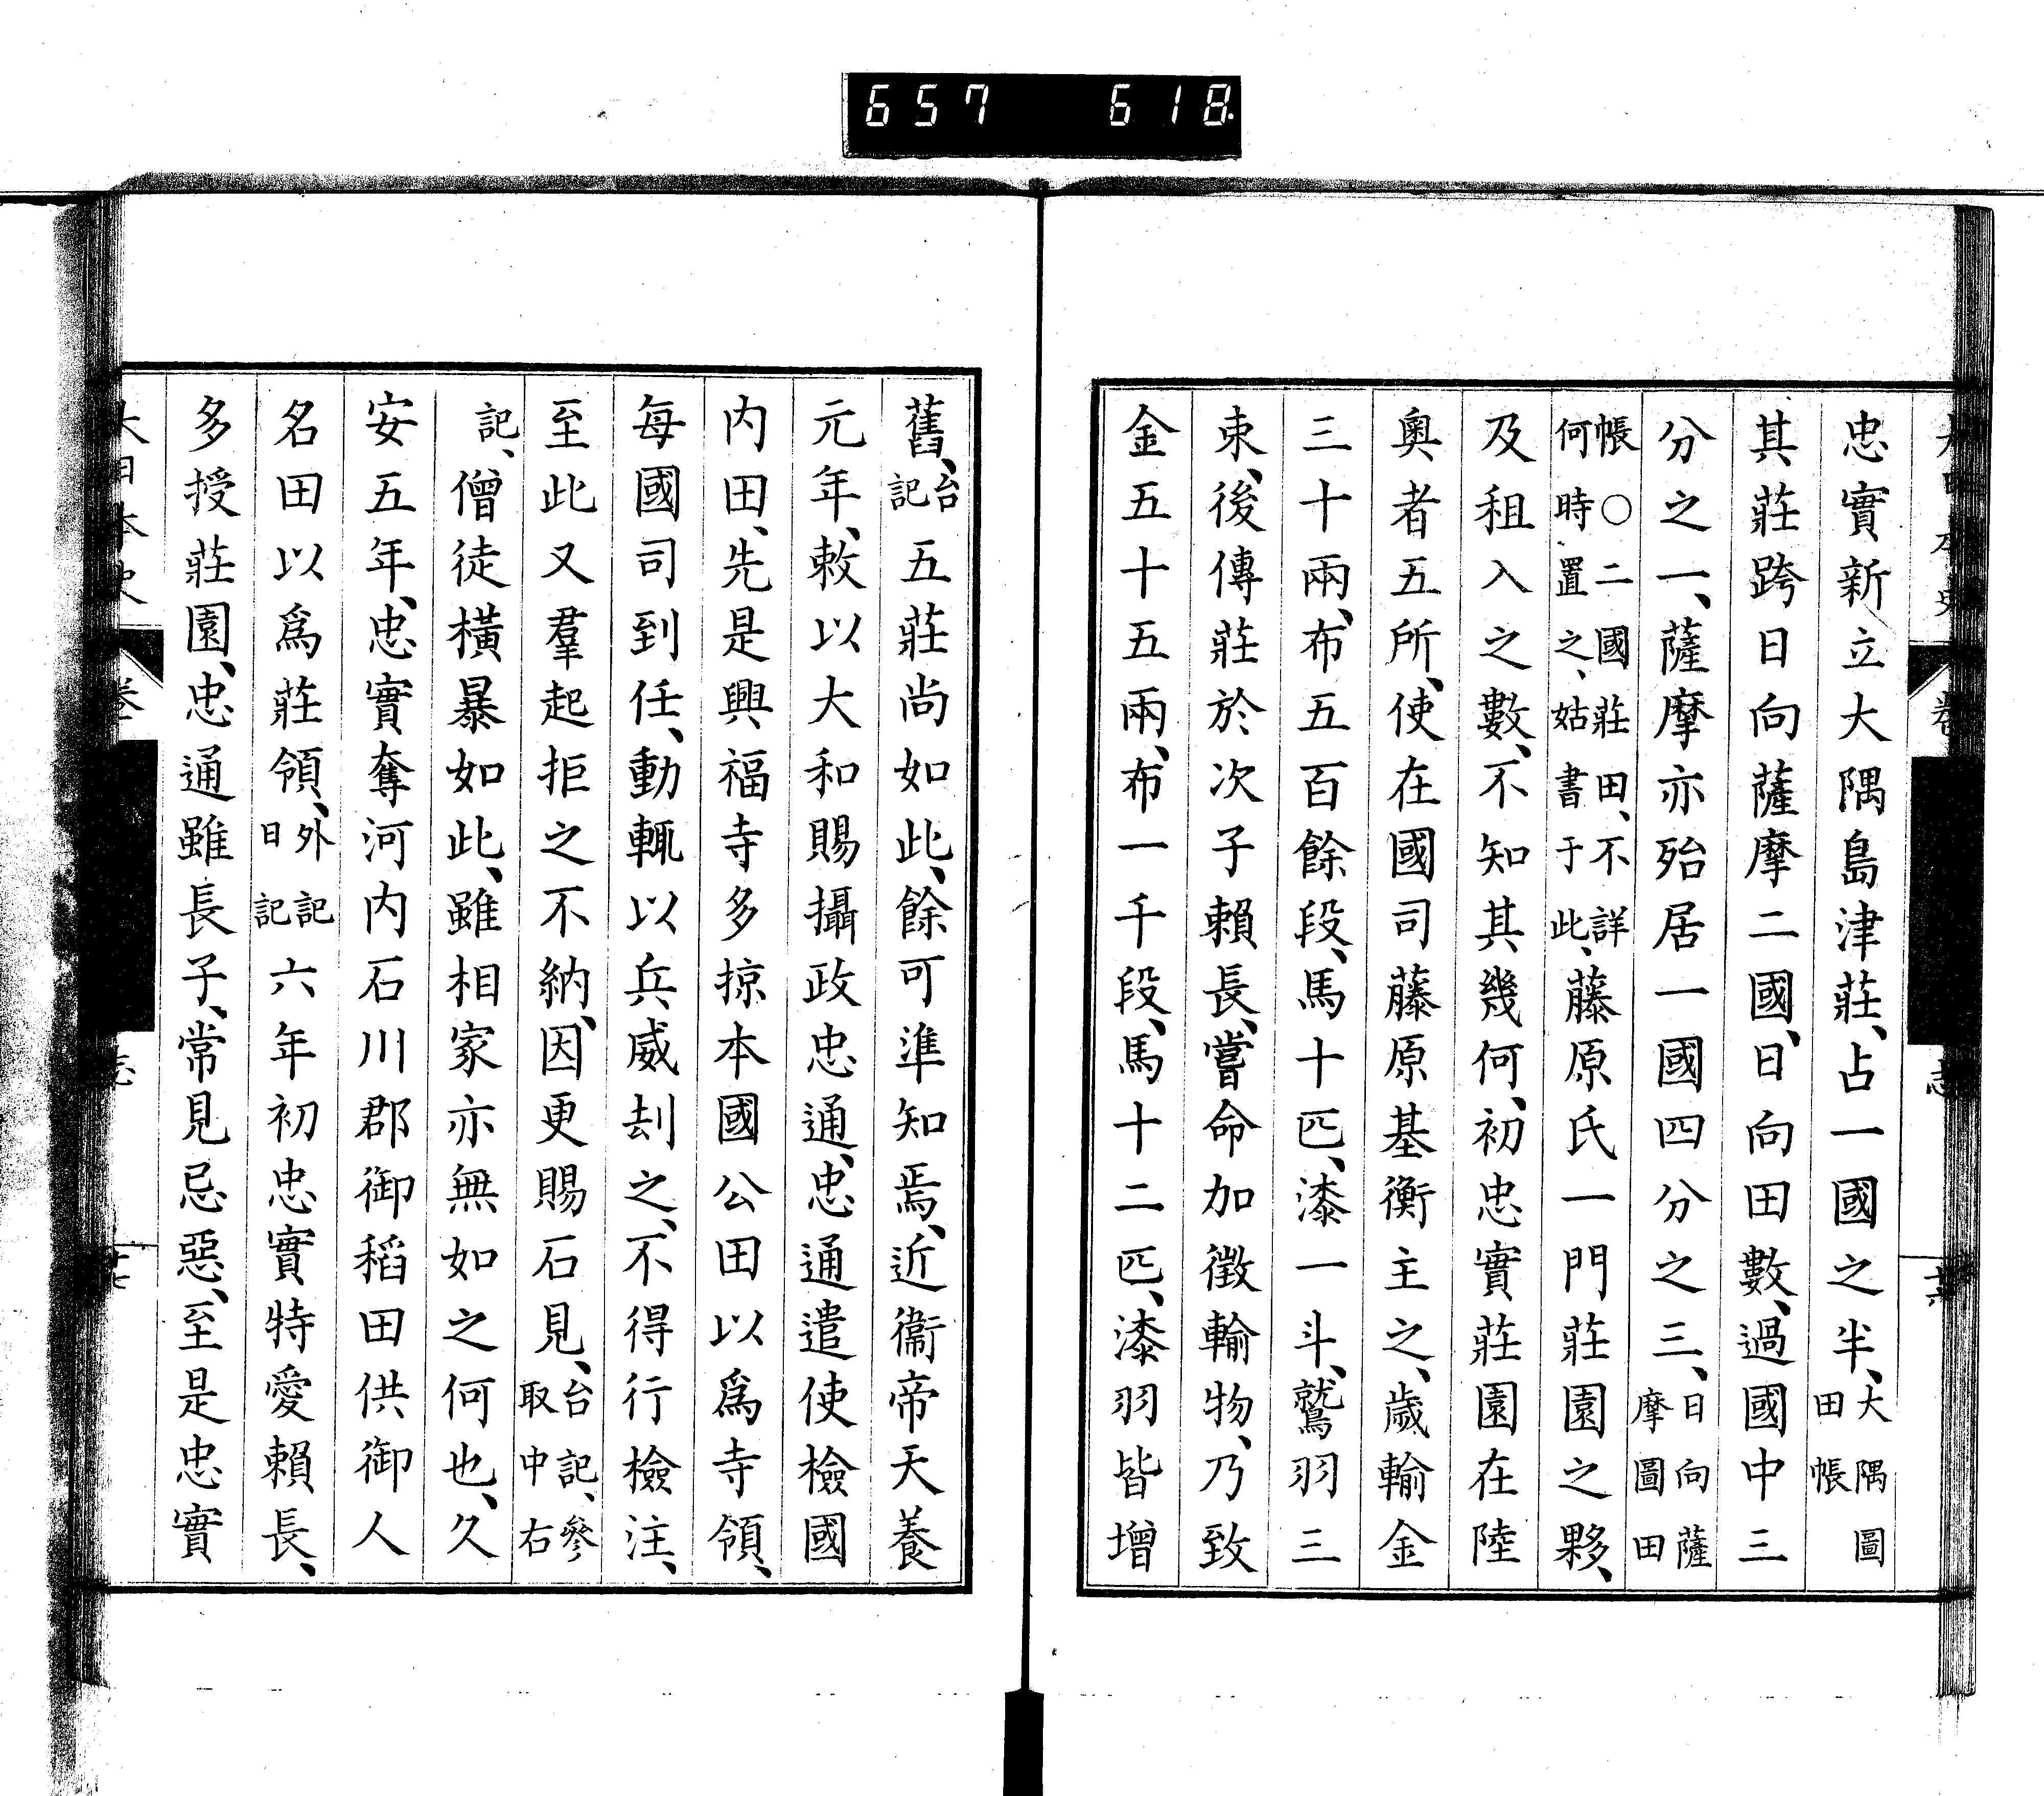 657 618
忠實新立大隅島津莊、占一國之半、大隅圖田帳
其莊跨日向薩摩二國、日向田數、過國中三
分之一、薩摩亦殆居一國四分之三、日向薩摩圖田
帳○二國莊田、不詳何時置之、姑書于此、藤原氏一門莊園之夥、
及租入之數、不知其幾何、初忠實莊園在陸
奧者五所、使在國司藤原基衡主之、歲輸金
三十兩、布五百餘段、馬十匹、漆一斗、鷲羽三
束、後傳莊於次子賴長、嘗命加徵輸物、乃致
金五十五兩、布一千段、馬十二匹、漆羽皆增
舊、台記五莊尚如此、餘可準知焉、近衞帝天養
元年、敕以大和賜攝政忠通、忠通遣使檢國
内田、先是興福寺多掠本國公田以爲寺領、
每國司到任、動輒以兵威刦之、不得行檢注、
至此又羣起拒之不納、因更賜石見、台記、參取中右
記、僧徒橫暴如此、雖相家亦無如之何也、久
安五年、忠實奪河内石川郡御稻田供御人
名田以爲莊領、外記日記六年初忠實特愛賴長、
多授莊園、忠通雖長子、常見忌惡、至是忠實
大日本史 卷 志 十七